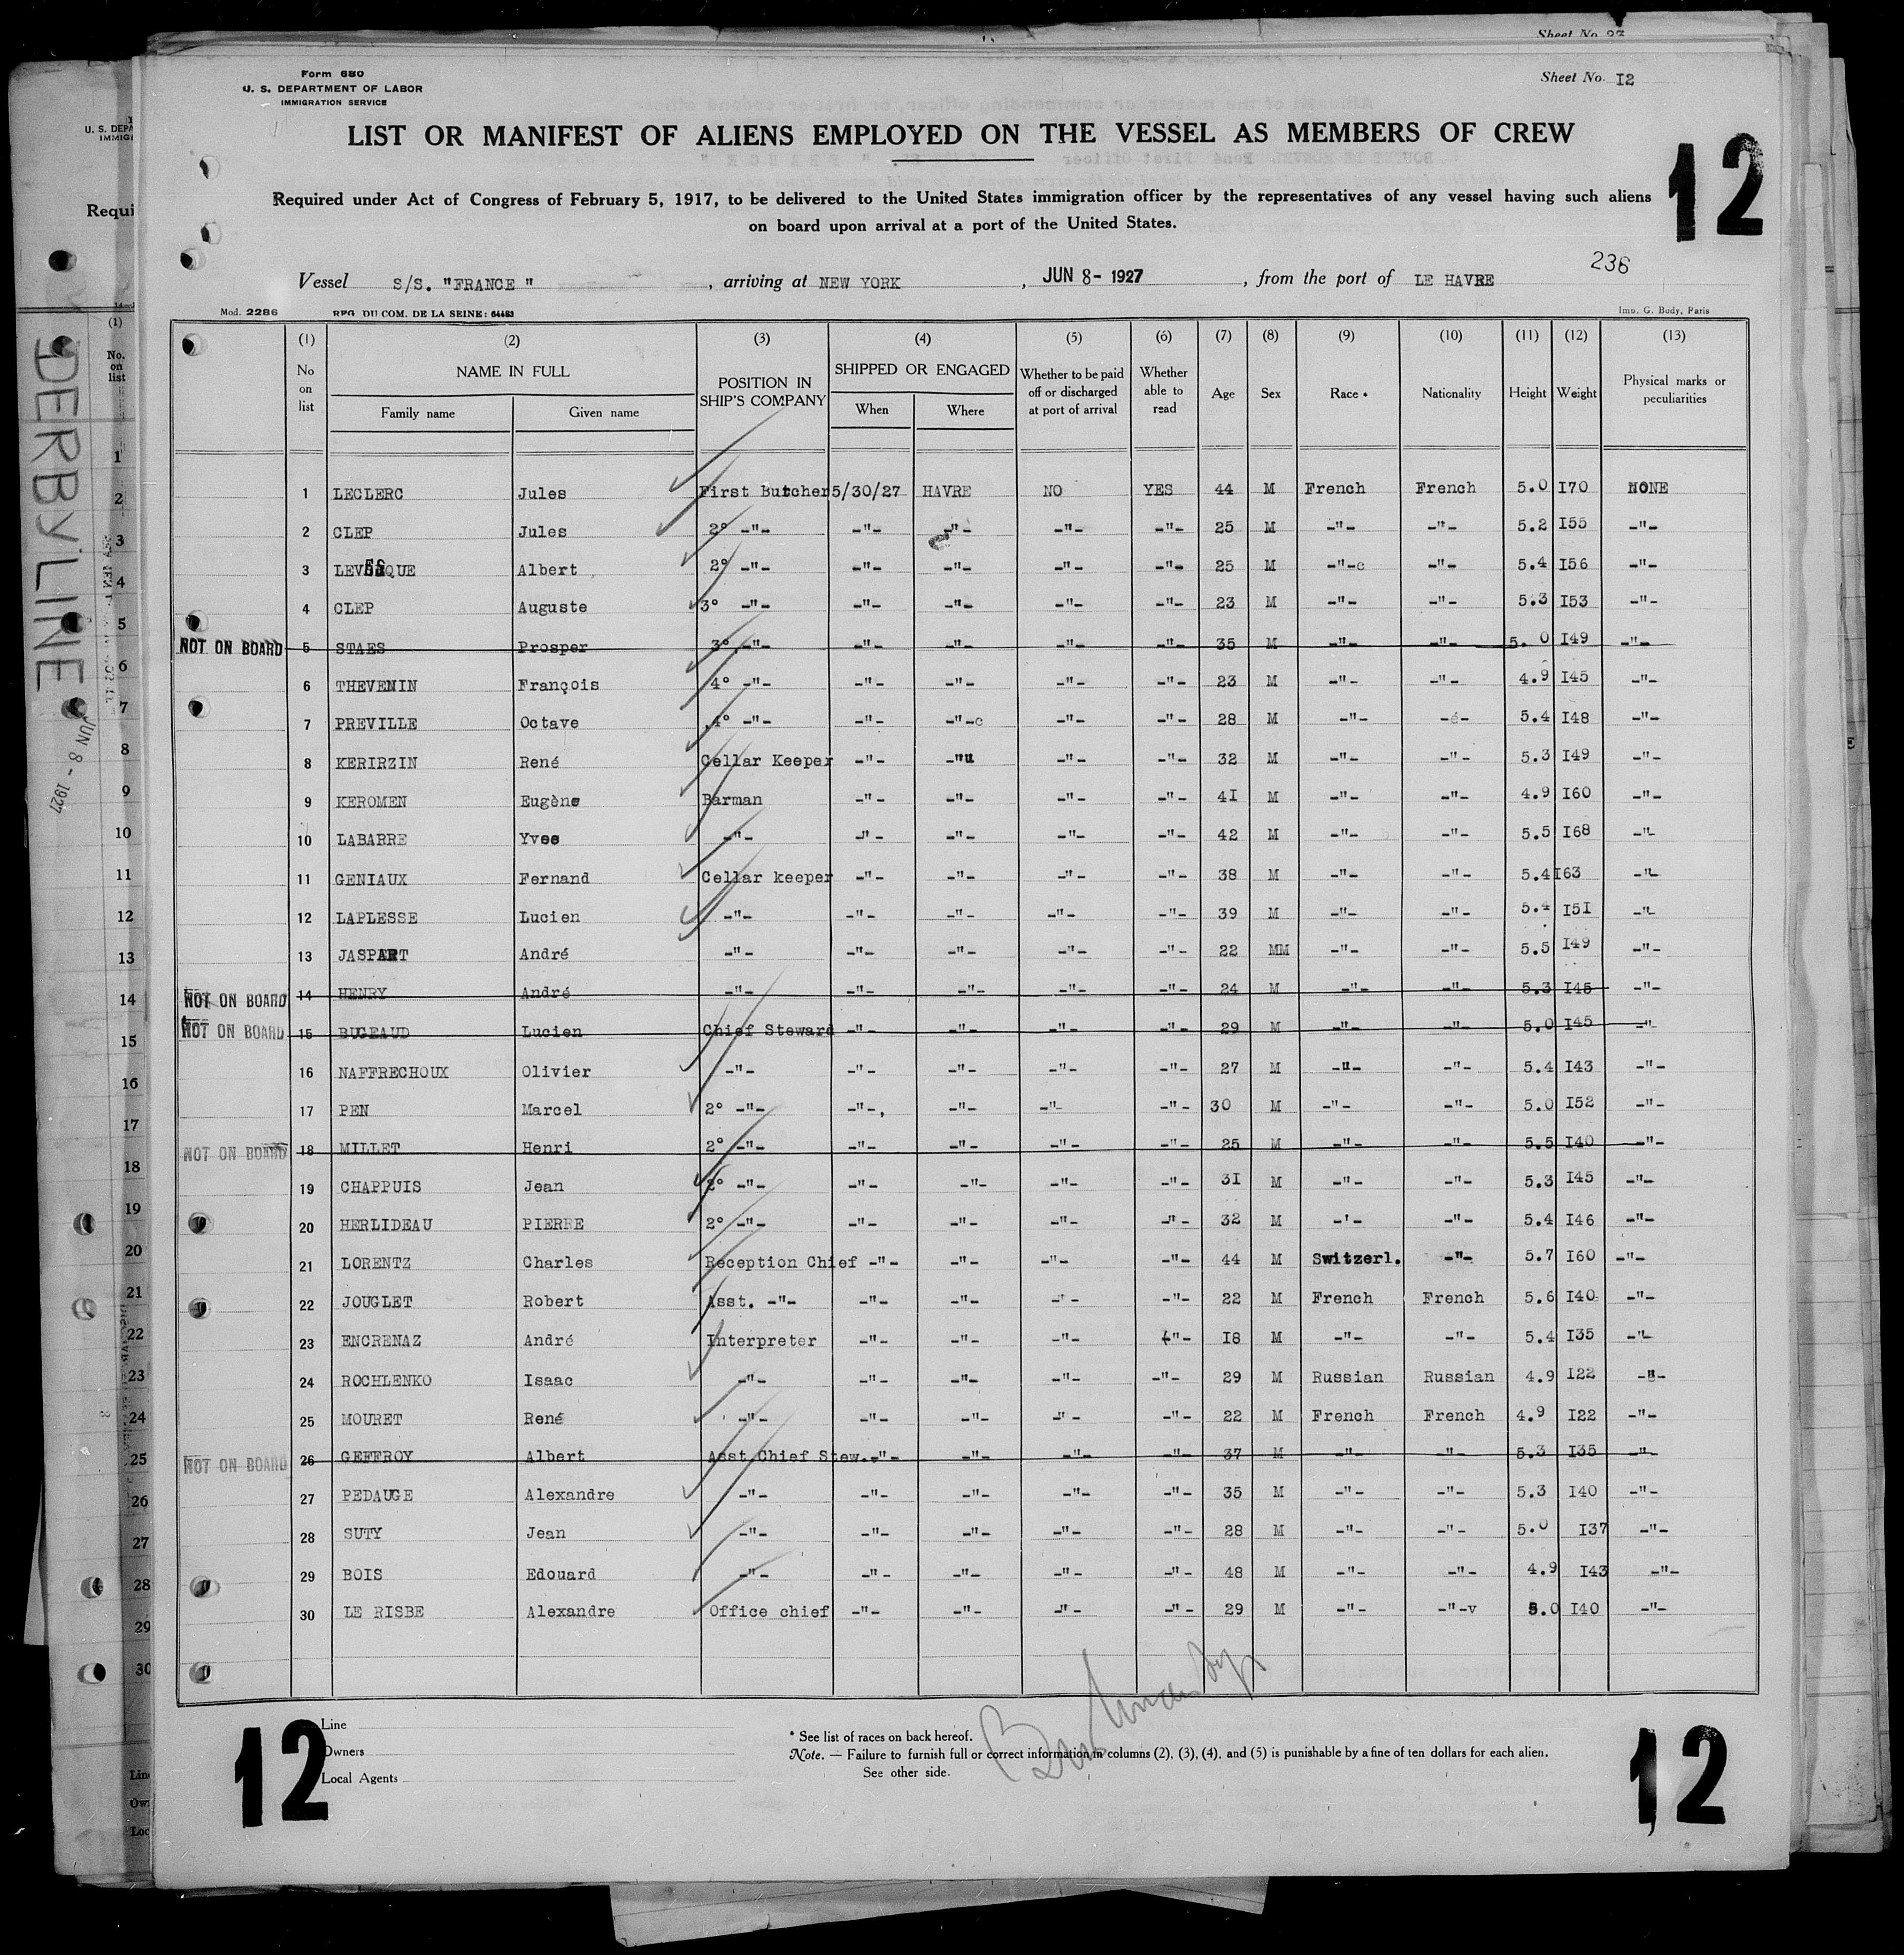 Sheet No. 23
Form 680
U. S. DEPARTMENT OF LABOR
IMMIGRATION SERVICE
Sheet No. I2
LIST OR MANIFEST OF ALIENS EMPLOYED ON THE VESSEL AS MEMBERS OF CREW
12
Required under Act of Congress of February 5, 1917, to be delivered to the United States immigration officer by the representatives of any vessel having such aliens
on board upon arrival at a port of the United States.
236
Vessel S/S. "FRANCE" , arriving at NEW YORK , JUN 8- 1927 , from the port of LE HAVRE
Mod. 2286 REG. DU COM. DE LA SEINE: 64483 Imp. G. Body, Paris
(1) (2) (3) (4) (5) (6) (7) (8) (9) (10) (11) (12) (13)
No on list NAME IN FULL Family name Given name POSITION IN SHIP'S COMPANY SHIPPED OR ENGAGED When Where Whether to be paid off or discharged at port of arrival Whether able to read Age Sex Race * Nationality Height Weight Physical marks or peculiarities
1 LECLERC Jules First Butcher 5/30/27 HAVRE NO YES 44 M French French 5.0 I70 NONE
2 CLEP Jules 2° -"- -"- -"- -"- -"- 25 M -"- -"- 5.2 I55 -"-
3 LEVESQUE Albert 2° -"- -"- -"- -"- -"- 25 M -"-c -"- 5.4 I56 -"-
4 CLEP Auguste 3° -"- -"- -"- -"- -"- 23 M -"- -"- 5.3 I53 -"-
NOT ON BOARD 5 STAES Prosper 3° -"- -"- -"- -"- -"- 35 M -"- -"- 5. 0 I49 -"-
6 THEVENIN François 4° -"- -"- -"- -"- -"- 23 M -"- -"- 4.9 I45 -"-
7 PREVILLE Octave 4° -"- -"- -"-c -"- -"- 28 M -"- -é- 5.4 I48 -"-
8 KERIRZIN René Cellar Keeper -"- -"u -"- -"- 32 M -"- -"- 5.3 I49 -"-
9 KEROMEN Eugène Barman -"- -"- -"- -"- 4I M -"- -"- 4.9 I60 -"-
10 LABARRE Yves -"- -"- -"- -"- -"- 42 M -"- -"- 5.5 I68 -"-
11 GENIAUX Fernand Cellar keeper -"- -"- -"- -"- 38 M -"- -"- 5.4 I63 -"-
12 LAPLESSE Lucien -"- -"- -"- -"- -"- 39 M -"- -"- 5.4 I5I -"-
13 JASPART André -"- -"- -"- -"- -"- 22 MM -"- -"- 5.5 I49 -"-
NOT ON BOARD 14 HENRY André -"- -"- -"- -"- -"- 24 M -"- -"- 5.3 I45 -"-
NOT ON BOARD 15 BUGEAUD Lucien Chief Steward -"- -"- -"- -"- 29 M -"- -"- 5.0 I45 -"-
16 NAFFRECHOUX Olivier -"- -"- -"- -"- -"- 27 M -"- -"- 5.4 I43 -"-
17 PEN Marcel 2° -"- -"-, -"- -"- -"- 30 M -"- -"- 5.0 I52 -"-
NOT ON BOARD 18 MILLET Henri 2° -"- -"- -"- -"- -"- 25 M -"- -"- 5.5 I40 -"-
19 CHAPPUIS Jean 2° -"- -"- -"- -"- -"- 3I M -"- -"- 5.3 I45 -"-
20 HERLIDEAU PIERRE 2° -"- -"- -"- -"- -"- 32 M -'- -"- 5.4 I46 -"-
21 LORENTZ Charles Reception Chief -"- -"- -"- -"- 44 M Switzerl. -"- 5.7 I60 -"-
22 JOUGLET Robert Asst. -"- -"- -"- -"- -"- 22 M French French 5.6 I40 -"-
23 ENCRENAZ André Interpreter -"- -"- -"- -"- I8 M -"- -"- 5.4 I35 -"-
24 ROCHLENKO Isaac -"- -"- -"- -"- -"- 29 M Russian Russian 4.9 I22 -"-
25 MOURET René -"- -"- -"- -"- -"- 22 M French French 4.9 I22 -"-
NOT ON BOARD 26 GEFFROY Albert Asst Chief Stew. -"- -"- -"- -"- 37 M -"- -"- 5.3 I35 -"-
27 PEDAUGE Alexandre -"- -"- -"- -"- -"- 35 M -"- -"- 5.3 I40 -"-
28 SUTY Jean -"- -"- -"- -"- -"- 28 M -"- -"- 5.0 I37 -"-
29 BOIS Edouard -"- -"- -"- -"- -"- 48 M -"- -"- 4.9 I43 -"-
30 LE RISBE Alexandre Office chief -"- -"- -"- -"- 29 M -"- -"-v 5.0 I40 -"-
12
Line
Owners
Local Agents
* See list of races on back hereof.
Note. — Failure to furnish full or correct information in columns (2), (3), (4), and (5) is punishable by a fine of ten dollars for each alien.
See other side.
12
U. S. DEPA
IMMIG
Requi
(1)
No. on list
DERBY LINE
JUN 8 - 1927
1
2
3
4
5
6
7
8
9
10
11
12
13
14
15
16
17
18
19
20
21
22
23
24
25
26
27
28
29
30
Lin
Own
Loc